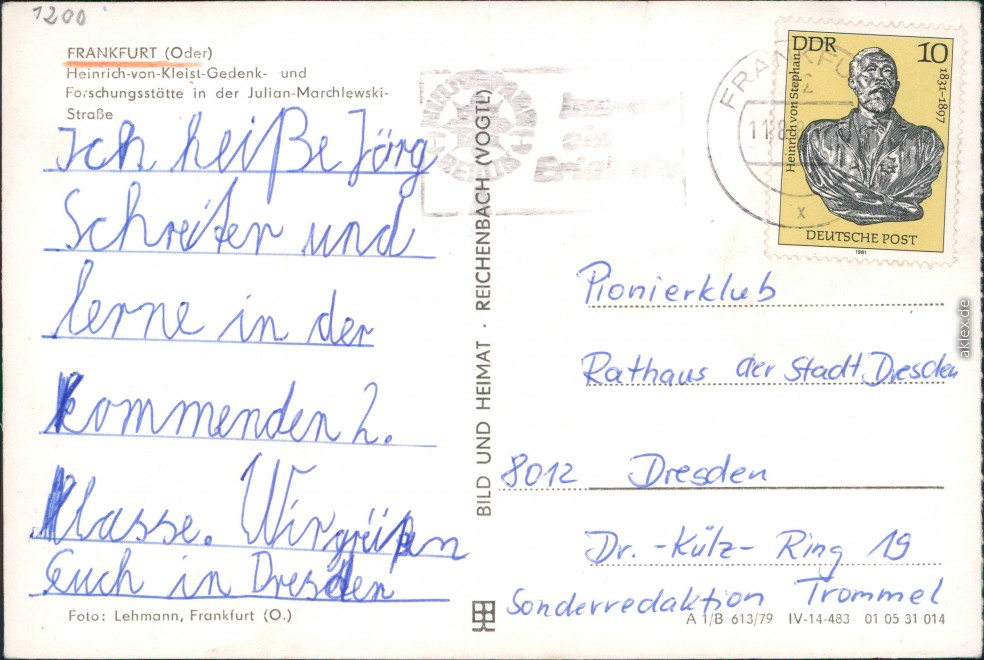 1200
FRANKFURT (Oder)
Heinrich-von-Kleist-Gedenk- und
Forschungsstätte in der Julian-Marchlewski-
Straße
Ich heiße Jörg
Schreiter und
lerne in der
kommenden 2.
Klasse. Wir grüßen
Euch in Dresden
Foto: Lehmann, Frankfurt (O.)
BILD UND HEIMAT · REICHENBACH (VOGTL)
BERLIN
ein
FRANKFU
2
11.8
x
DDR 10
Heinrich von Stephan
1831-1897
DEUTSCHE POST
1981
Pionierklub
Rathaus der Stadt Dresden
8012 Dresden
Dr.-Külz-Ring 19
Sonderredaktion Trommel
A 1/B 613/79 IV-14-483 01 05 31 014
aklex.de